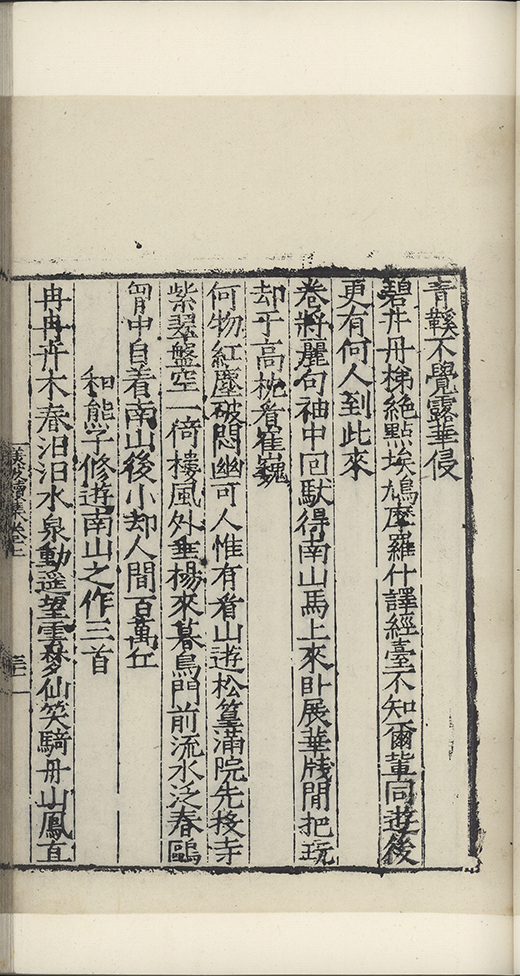 青鞵不覺露華侵
碧井丹梯絶點埃鳩摩羅什譯經臺不知爾輩同遊後
更有何人到此來
卷將麗句袖中回馱得南山馬上來卧展華牋閒把玩
却于高枕看崔巍
何物紅塵破悶幽可人惟有看山遊松篁滿院先投寺
紫翠盤空一倚樓風外垂楊來暮鳥門前流水泛春鷗
胷中自着南山後小却人間百萬丘
和熊子修遊南山之作三首
冉冉卉木春汩汩水泉動遥望雲夢仙笑騎丹山鳳直